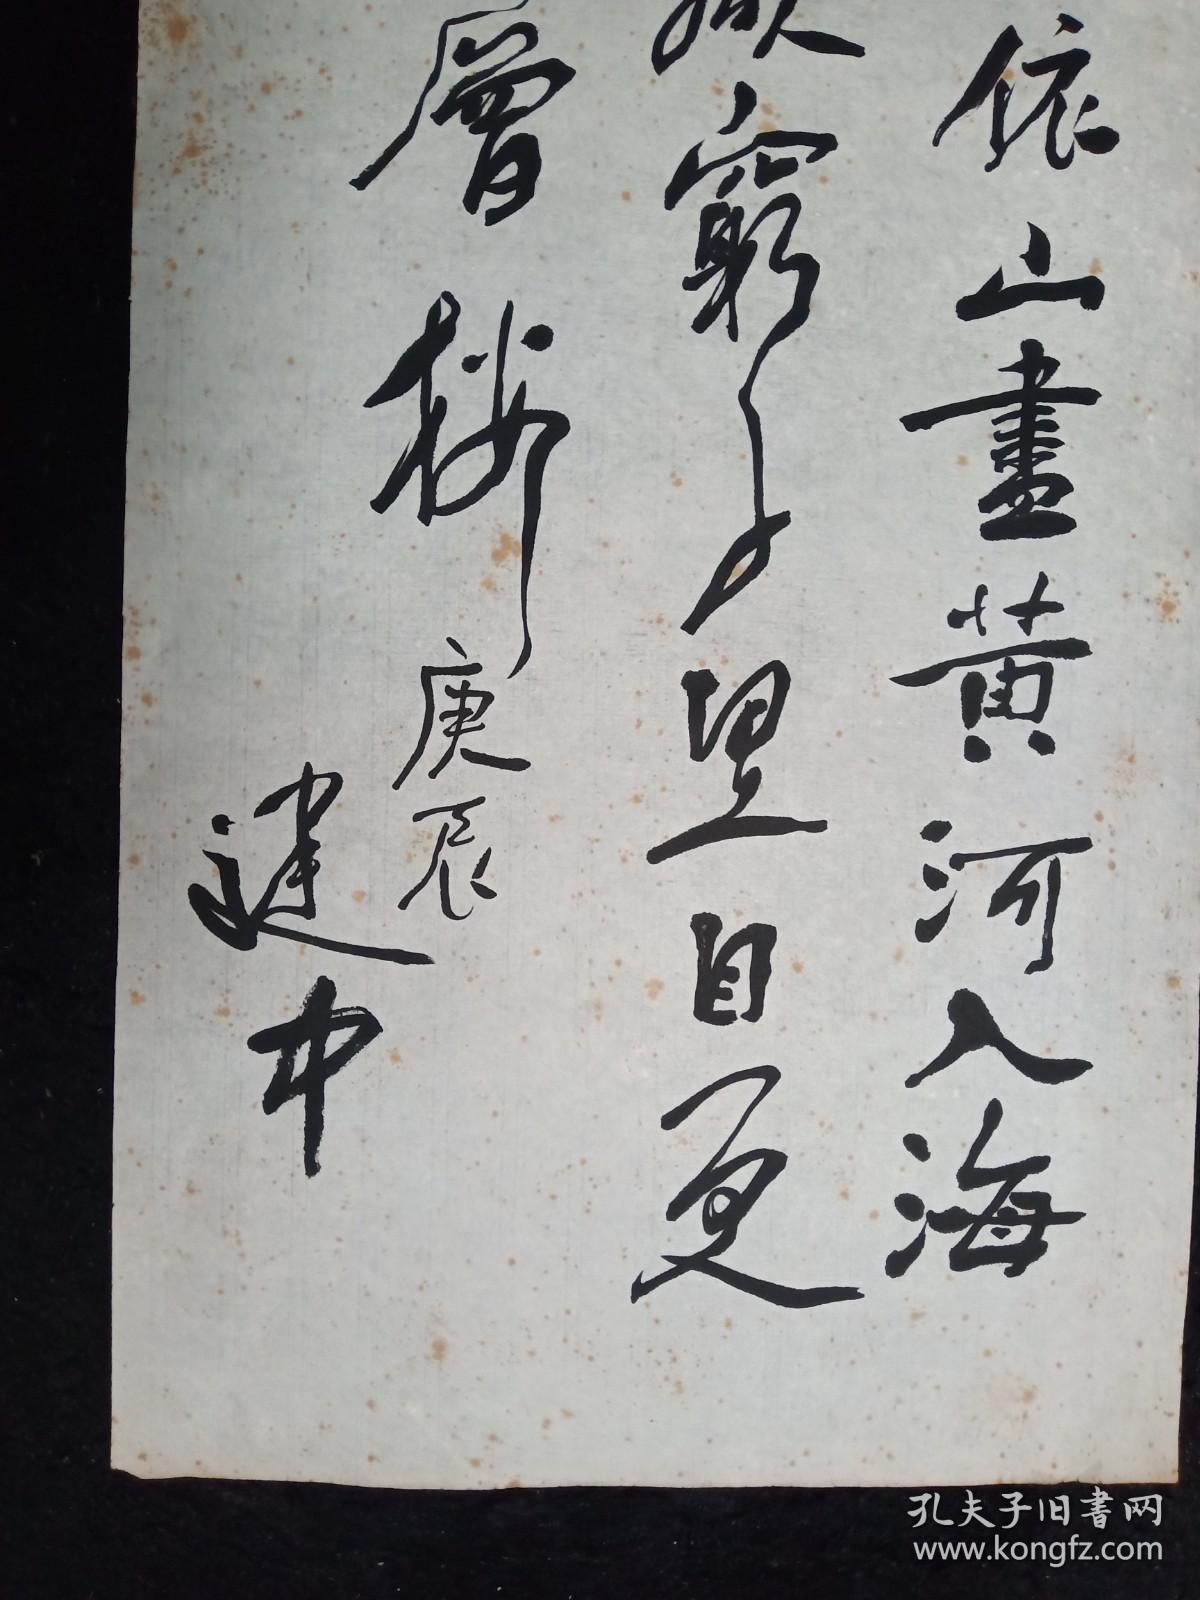 依山盡黄河入海
窮千里目更
層樓
庚辰
建中
孔夫子旧書网
www.kongfz.com